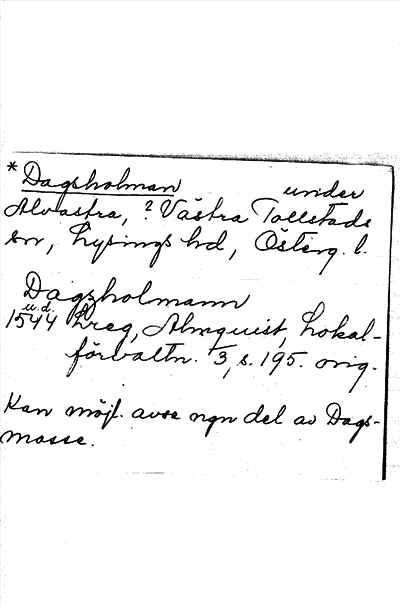 * Dagsholman under
Alvastra, ? Västra Tollstads
sn, Lysings hd, Österg. l.
Dagzholmann
u.d.
1544 Lreg, Almquist, Lokal-
förvaltn. 1/3, s. 195. orig.
Kan möjl. avse ngn del av Dags-
mosse.